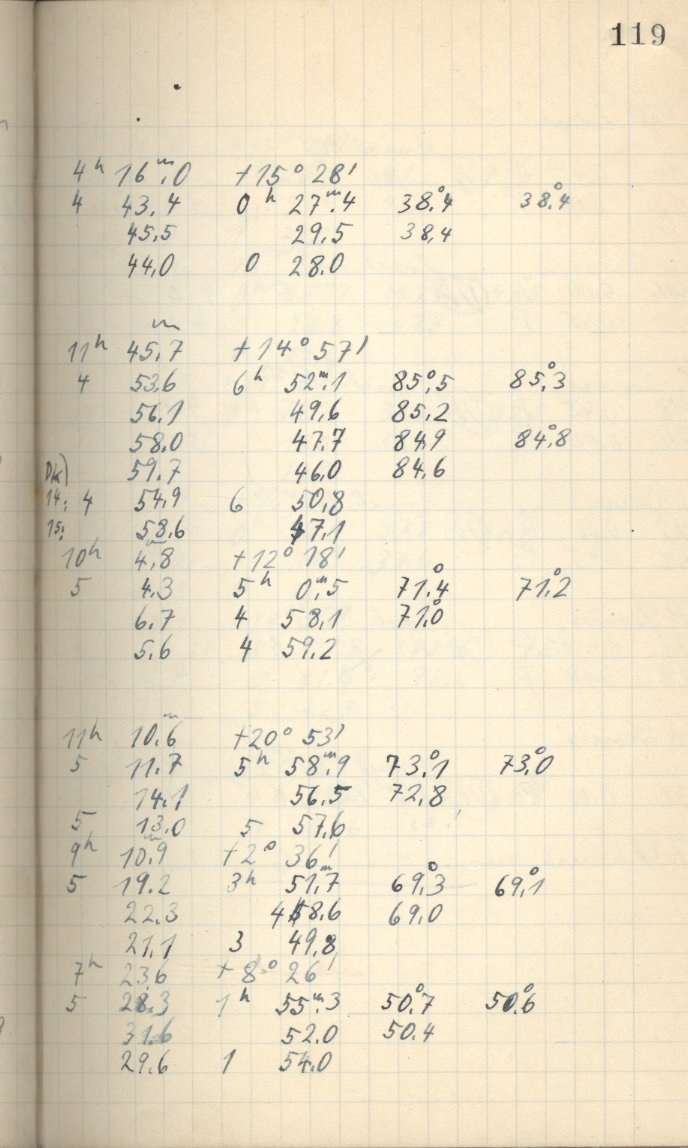 119
4ʰ 16ᵐ.0 +15° 28'
4 43.4 0ʰ 27ᵐ.4 38°.4 38°.4
45.5 29.5 38.4
44.0 0 28.0
11ʰ 45ᵐ.7 +14° 57'
4 53.6 6ʰ 52ᵐ.1 85°.5 85°.3
56.1 49.6 85.2
58.0 47.7 84.9 84°.8
59.7 46.0 84.6
14: 4 54.9 6 50.8
15: 58.6 47.1
10ʰ 4ᵐ.8 +12° 18'
5 4.3 5ʰ 0ᵐ.5 71°.4 71°.2
6.7 4 58.1 71°.0
5.6 4 59.2
11ʰ 10ᵐ.6 +20° 53'
5 11.7 5ʰ 58ᵐ.9 73°.1 73°.0
14.1 56.5 72.8
5 13.0 5 57.6
9ʰ 10ᵐ.9 +2° 36'
5 19.2 3ʰ 51ᵐ.7 69°.3 69°.1
22.3 48.6 69.0
21.1 3 49.8
7ʰ 23.6 +8° 26'
5 28.3 1ʰ 55ᵐ.3 50°.7 50°.6
31.6 52.0 50.4
29.6 1 54.0